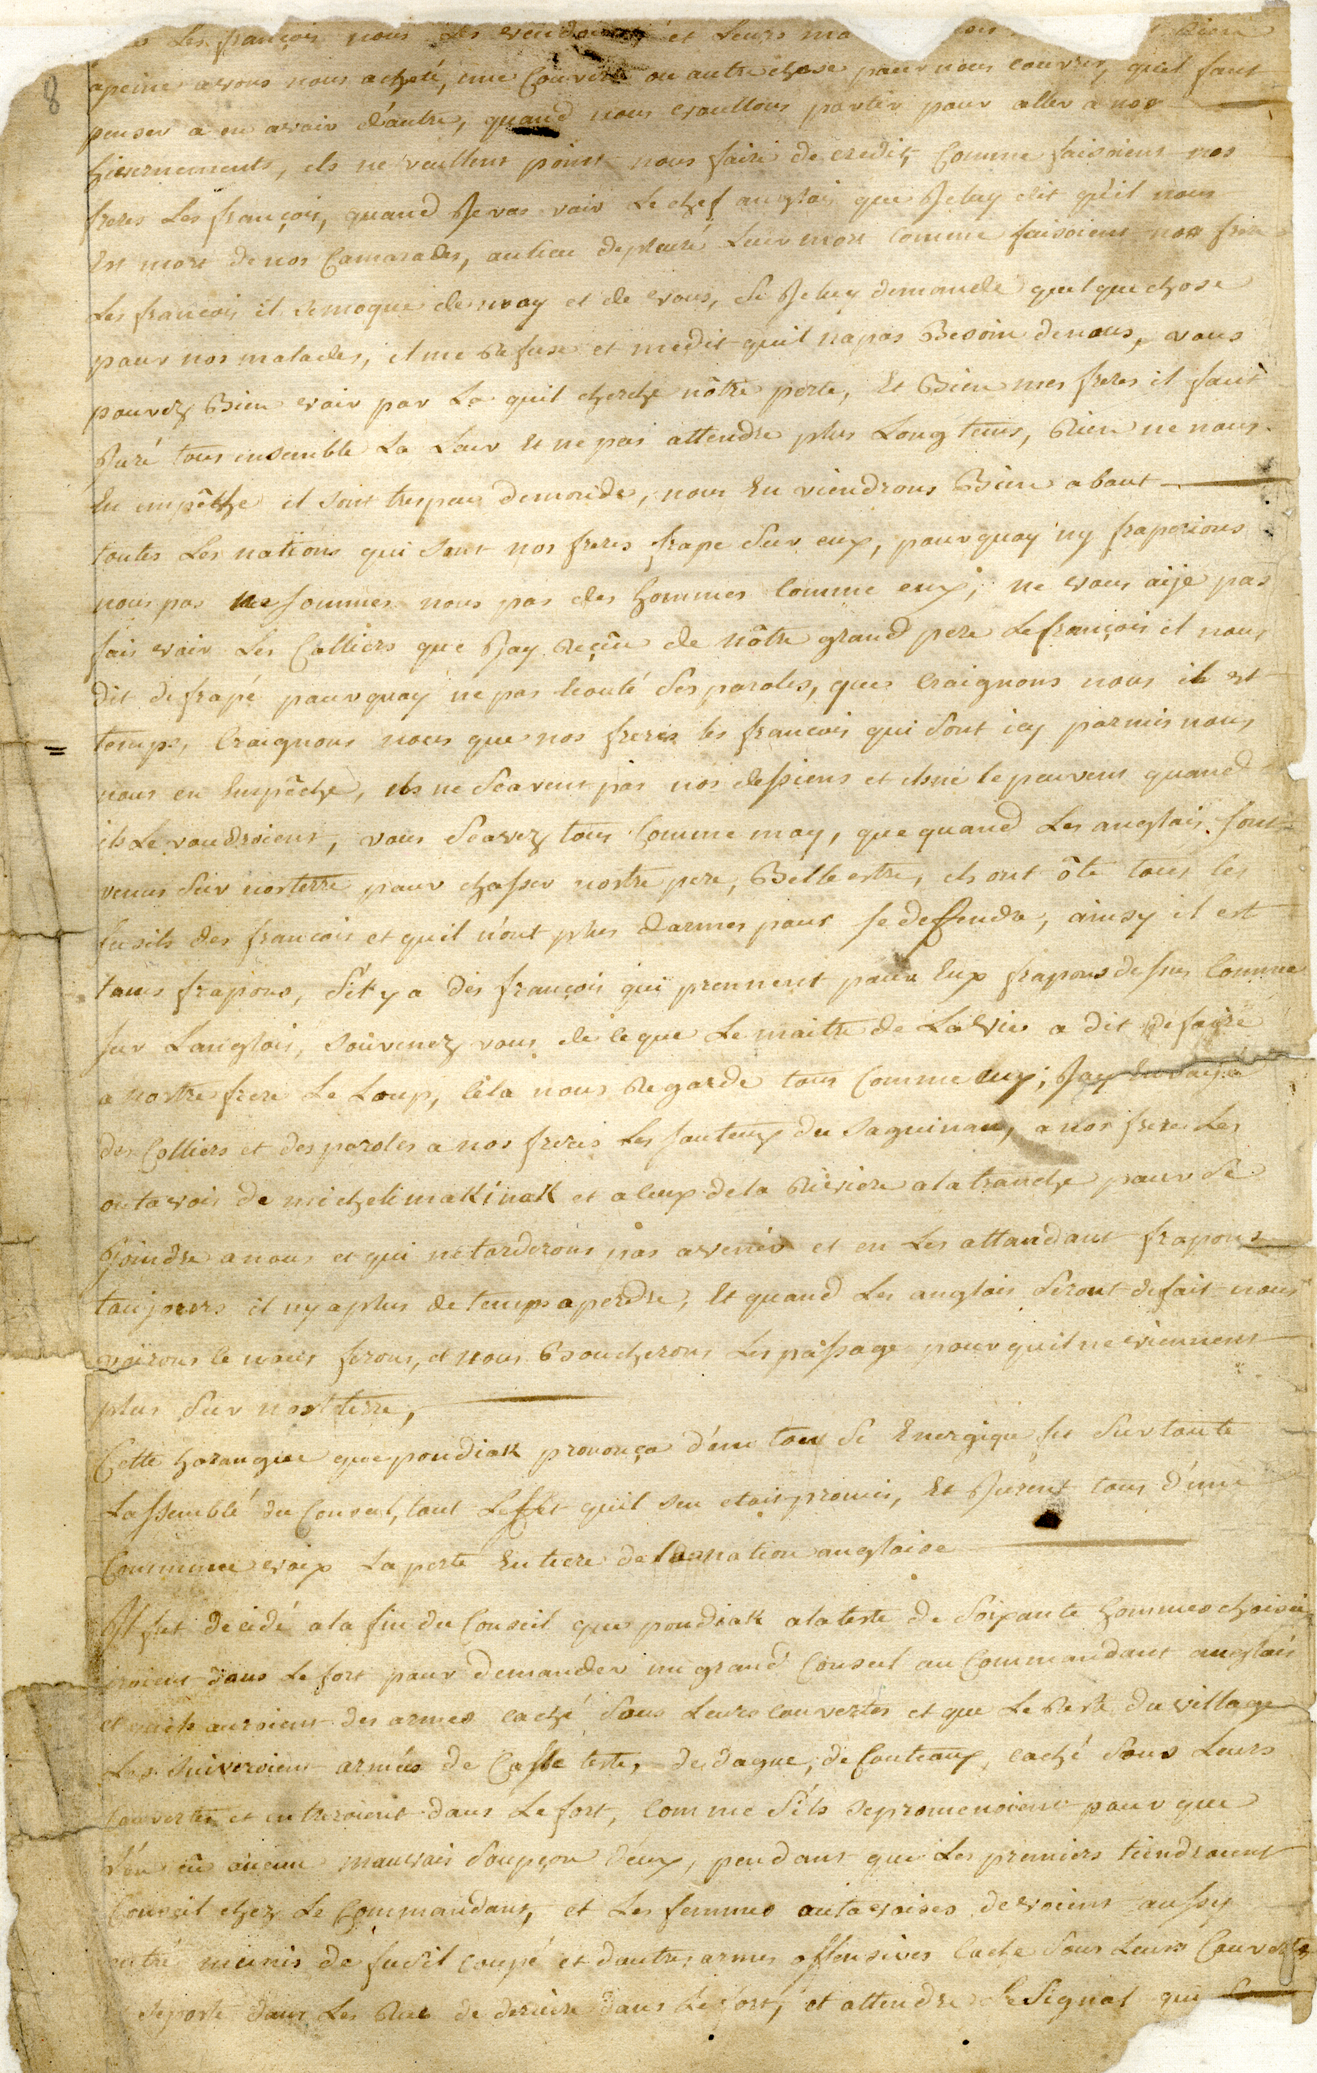 8
Les françois nous les vendoient et Leurs ma
apeine avons nous acheté, une Couverte ou autre chose pour nous couvrir, quil faut
penser a en avoir d'autre, quand nous voullons partir pour aller a nos
hivernements, ils ne veullent point nous faire de credit, Comme faisoient nos
freres Les françois, quand Je vas voir Le chef anglois que Je luy dit qu'il nous
Est mort de nos Camarades, aulieu de pleuré Leur mort Comme faisoient nos frere
Les francois il semoque de moy et de vous, si Je luy demande quelque chose
pour nos malades, il me Refuse et medit quil napas Besoin denous, vous
pouvez Bien voir par La quil cherche nôtre perte, Et Bien mes freres il faut
Juré tous ensemble La Leur Et ne pas attendre plus Long tems, Rien ne nous
En empêche il sont trespeu demonde, nous En viendrons Bien a bout
toutes Les nations qui sont nos freres frape sur eux, pourquoy ny fraperions
nous pas ne sommes nous pas des hommes Comme eux; ne vous aije pas
fais voir Les Colliers que Jay Reçûe de nôtre grand pere Lefrançois il nous
dit defrapé pourquoy ne pas Ecouté ses paroles, que Craignons nous il est
temps, Craignons nous que nos freres les francois qui sont icy parmis nous
nous en Empêche, ils ne sçavent pas nos desseins et ils ne le peuvent quand
ils Le voudroient, vous sçavez tous Comme moy, que quand Les anglois sont
venus sur nosterre pour chasser nostre pere, Bellestre, ils ont ôte tous les
fusils des francois et quil n'ont plus darmes pour se deffendre, ainsy il est
tems frapons, s'il y a des françois qui prennent pour Eux frapons dessus Comme
sur Langlois, souvenez vous de ceque Le maitre de La Vie a dit de faire
a nostre frere Le Loup, Cela nous Regarde tous Comme eux; Jay Envoyé
des Colliers et des paroles a nos freres Les sauteux du saguinau, a nos freres Les
outavois de michelimakinak et a Ceux dela Riviere ala tranche pour se
Joindre anous et qui ne tarderons pas avenir et en Les attandant frapons
toujours il nya plus de temps aperdre, Et quand Les anglois seront defait nous
voirons ce nous ferons, et nous Boucherons Les passage pour quil ne viennent
plus sur nostterre,
Cette harangue que pondiak prononça d'un ton si Energique fit sur toute
Lassemblé du Conseil, tout Leffet quil sen etoit promis, Et Jurent tous d'une
Commune voix La perte Entiere de la nation angloise
Il fut decidé ala fin du Conseil que pondiak alateste de soixante hommes choisie
iroient dans Le fort pour demander un grand Conseil au Commandant anglois
et quils auroient des armes caché sous Leurs couvertes et que Le Reste du village
Les suiveroient armées de Casse teste, de dague, de Couteaux, caché sous Leurs
couvertes et entreroient dans Le fort, comme s'ils sepromenoient pour que
l'on eû aucun mauvais soupçon d'eux, pendant que Les premiers tiendroient
Conseil chez Le Commandant, et Les femmes outavoises devoient aussy
entré munis de fusil coupé et dautres armes offensives Caché sous Leurs Couvertes
seposte dans Les Rue de deriere dans Le fort, et attendre Le signal qui